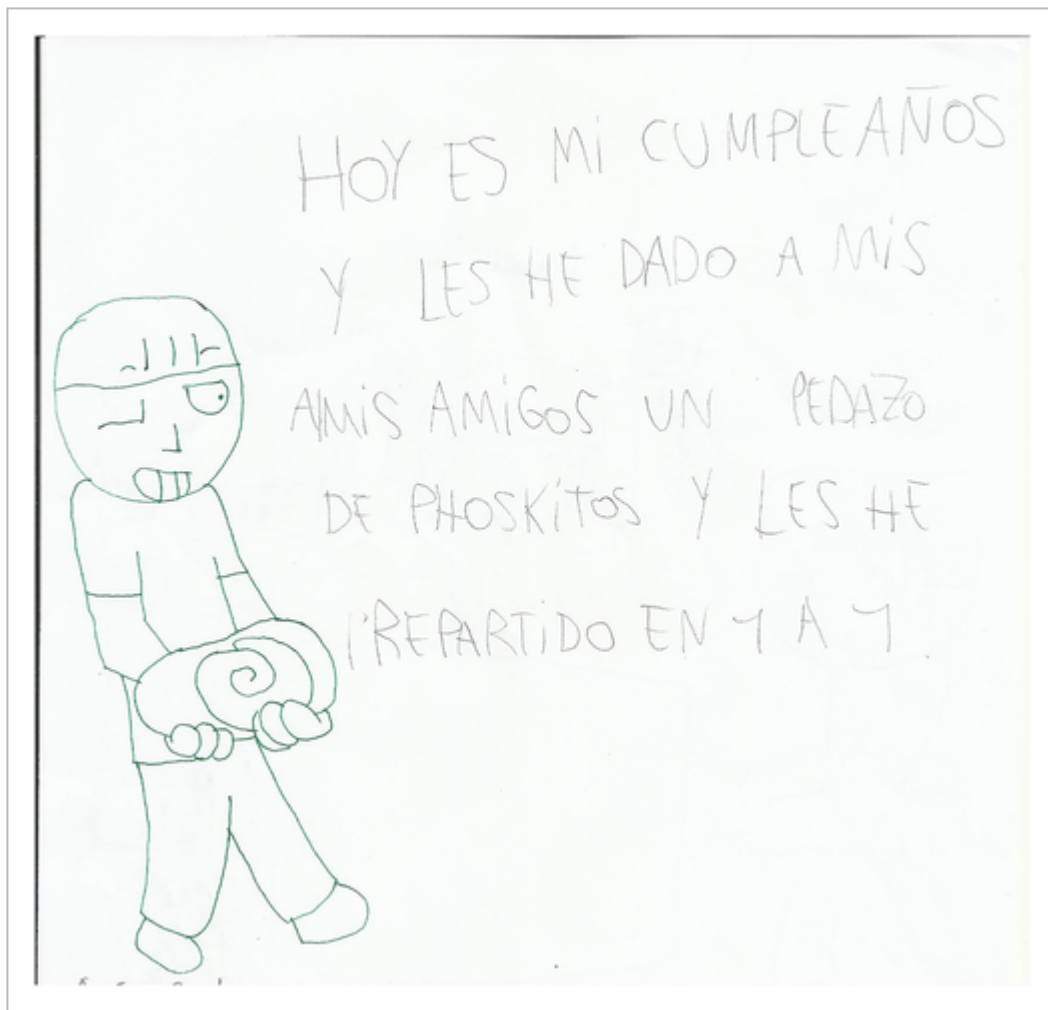 HOY ES Mi CUMPLEAÑOS
Y LES HE DADO A MiS
AMiS AMiGOS UN PEDAZO
DE PHOSKiTOS Y LES HE
REPARTiDO EN 1 A 1.